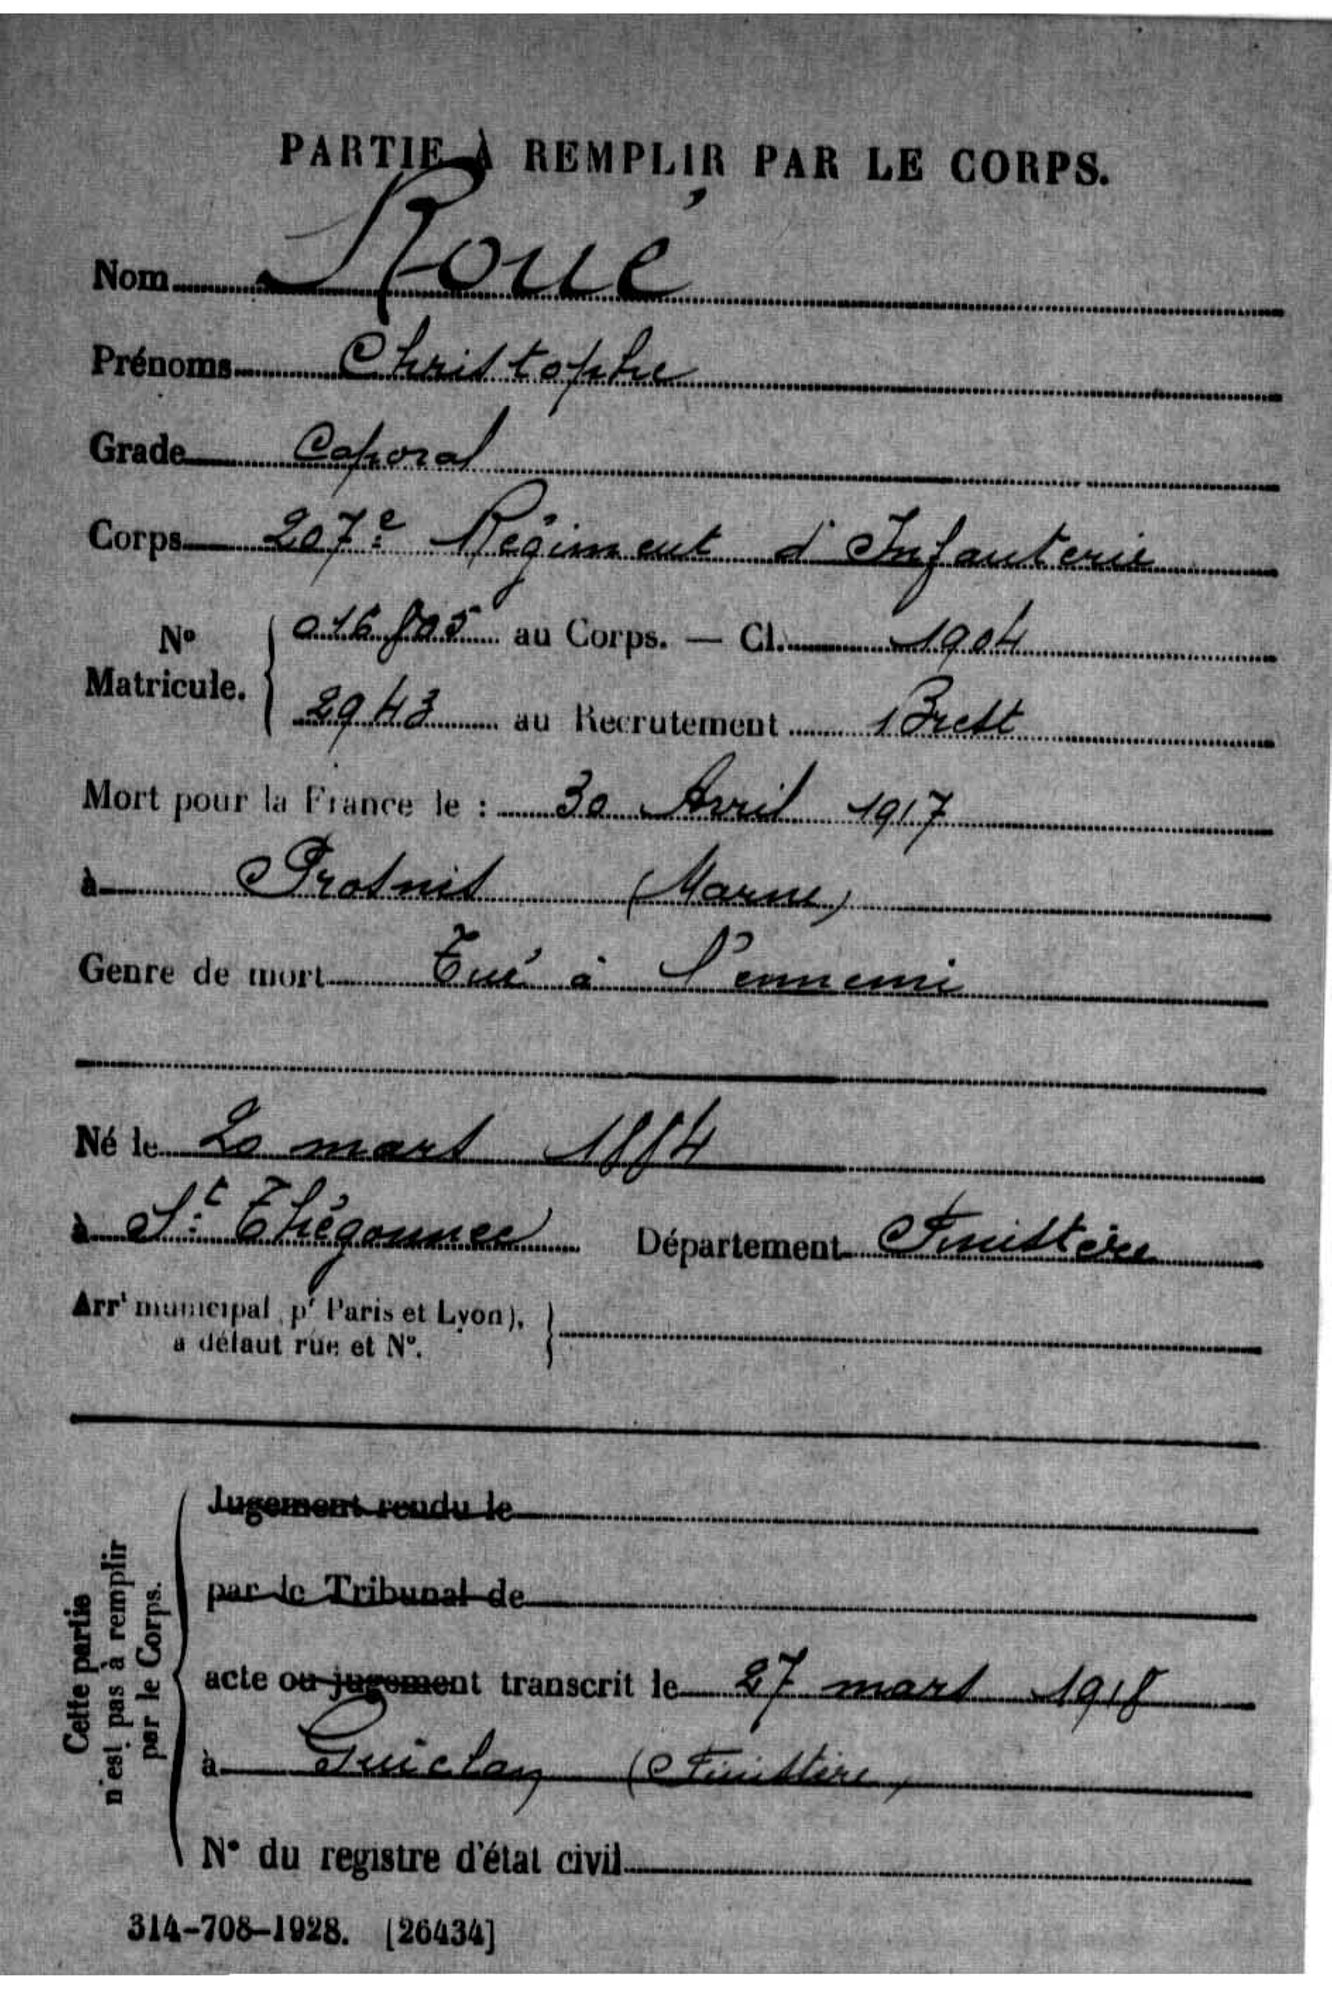 PARTIE À REMPLIR PAR LE CORPS.
Nom Roué
Prénoms Christophe
Grade Caporal
Corps 207e Régiment d'Infanterie
N° Matricule. 016805 au Corps. — Cl. 1904
2943 au Recrutement Brest
Mort pour la France le : 30 Avril 1917
à Prosnes (Marne)
Genre de mort Tué à l'ennemi
Né le 20 mars 1884
à St Thégonnec Département Finistère
Arrt municipal (pr Paris et Lyon),
à défaut rue et N°.
Cette partie
n'est pas à remplir
par le Corps.
Jugement rendu le
par le Tribunal de
acte ou jugement transcrit le 27 mars 1918
à Guiclan (Finistère)
N° du registre d'état civil
314-708-1928. [26434]